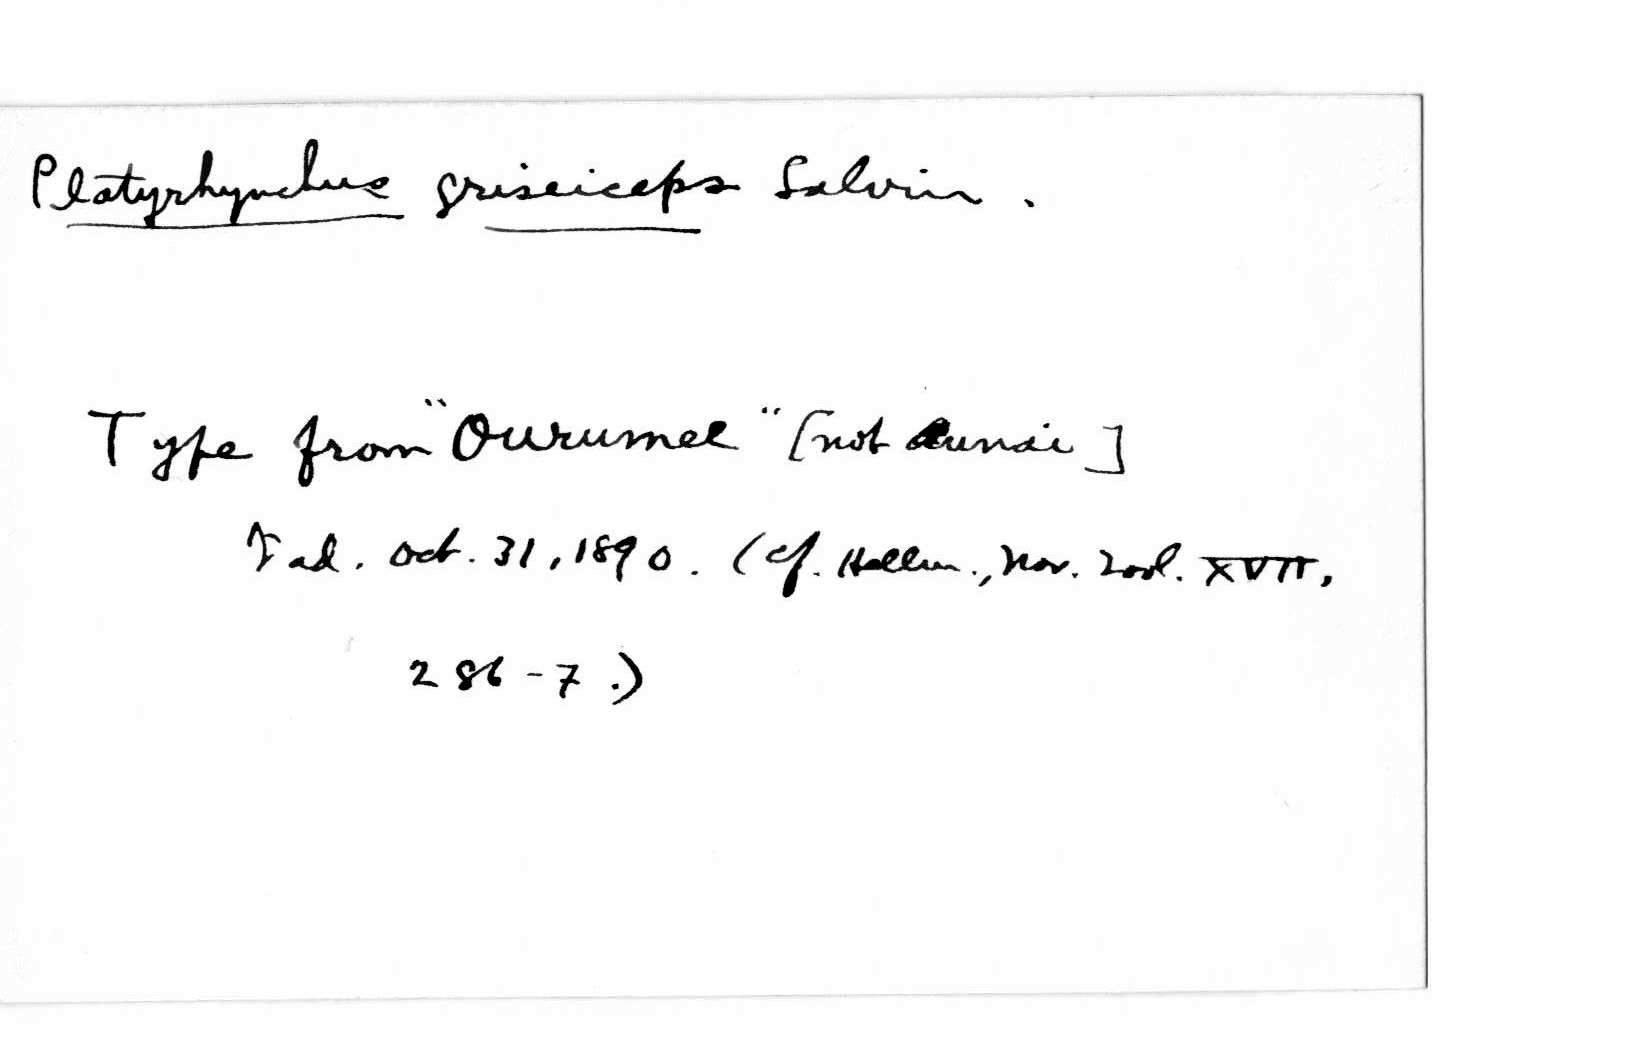 Platyrhynchus griseiceps Salvin.
Type from "Ourumee" [not Annai]
ad. Oct. 31, 1890. (cf. Hellm., Nov. Zool. XVII,
286-7.)